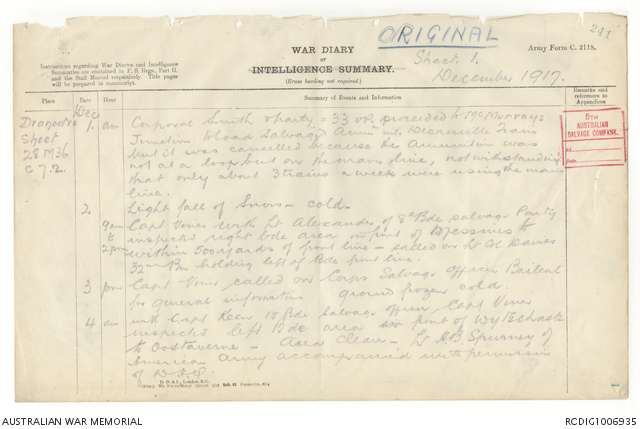 ORIGINAL
291
WAR DIARY
or
INTELLIGENCE SUMMARY.
(Erase heading not required.)
Army Form C. 2118.
Instructions regarding War Diaries and Intelligence
Summaries are contained in F. S. Regs., Part II.
and the Staff Manual respectively. Title pages
will be prepared in manuscript.
Sheet 1.
December 1917.
Place
Date
Hour
Summary of Events and Information
Remarks and
references to
Appendices
Dec
Dranoutre
Sheet
28 M36
c 7.2.
5TH
AUSTRALIAN
SALVAGE COMPANY.
No.
Date
1. am Corporal Smith & party 33 OR proceded to
Junction to load Salvage Ammn into Train
but it was cancelled because the Ammunition was
not at a loop but on the main line, notwithstanding
that only about 3 trains a week were using the main
line.
2 Light fall of Snow - cold.
9am to 2pm Capt Vines with Lt Alexander of 8th Bde Salvage Party
inspected right bde area in front of Messines to
within 500 yards of front line - called on Lt Col Davies
32nd Bn holding left of Bde front line.
3 pm Capt Vines called on Corps Salvage Officer Bailleul
for general information ground frozen cold.
4 am with Capt Keen 15 Bde Salvage Officer, Capt Vines
inspected left Bde area in front of Wytschaete
to Oostaverne - Area Clean - Lt
American Army accompanied with permission
of
D. D. & L., London, E.C.
AUSTRALIAN WAR MEMORIAL
RCDIG1006935